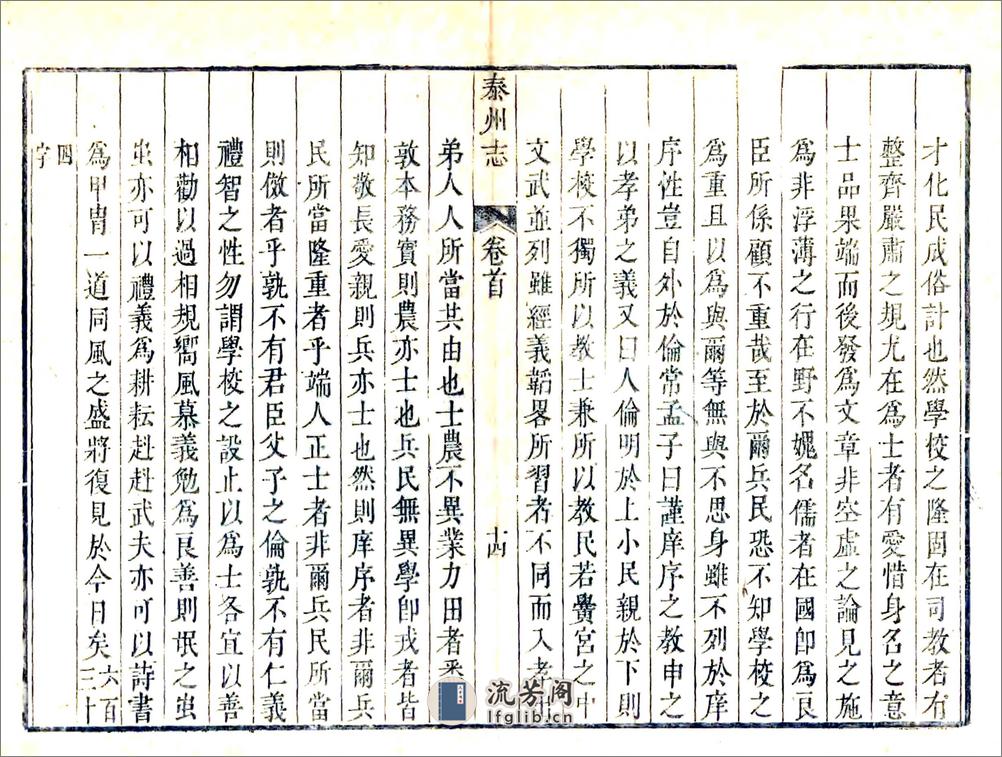 才化民成俗計也然學校之隆固在司教者有
整齊嚴肅之規尤在爲士者有愛惜身名之意
士品果端而後發爲文章非空虛之論見之施
爲非浮薄之行在野不媿名儒者在國卽爲良
臣所係顧不重哉至於爾兵民恐不知學校之
爲重且以爲與爾等無與不思身雖不列於庠
序性豈自外於倫常孟子曰謹庠序之教申之
以孝弟之義又曰人倫明於上小民親於下則
學校不獨所以教士兼所以教民若黌宮之中
文武並列雖經義韜畧所習者不同而入孝
泰州志
卷首
十四
弟人人所當共由也士農不異業力田者悉
敦本務實則農亦士也兵民無異學卽戎者皆
知敬長愛親則兵亦士也然則庠序者非爾兵
民所當隆重者乎端人正士者非爾兵民所當
則傚者乎孰不有君臣父子之倫孰不有仁義
禮智之性勿謂學校之設止以爲士各宜以善
相勸以過相規嚮風慕義勉爲良善則氓之蚩
蚩亦可以禮義爲耕耘赳赳武夫亦可以詩書
爲甲冑一道同風之盛將復見於今日矣六百三十
四字
流芳阁
lfglib.cn